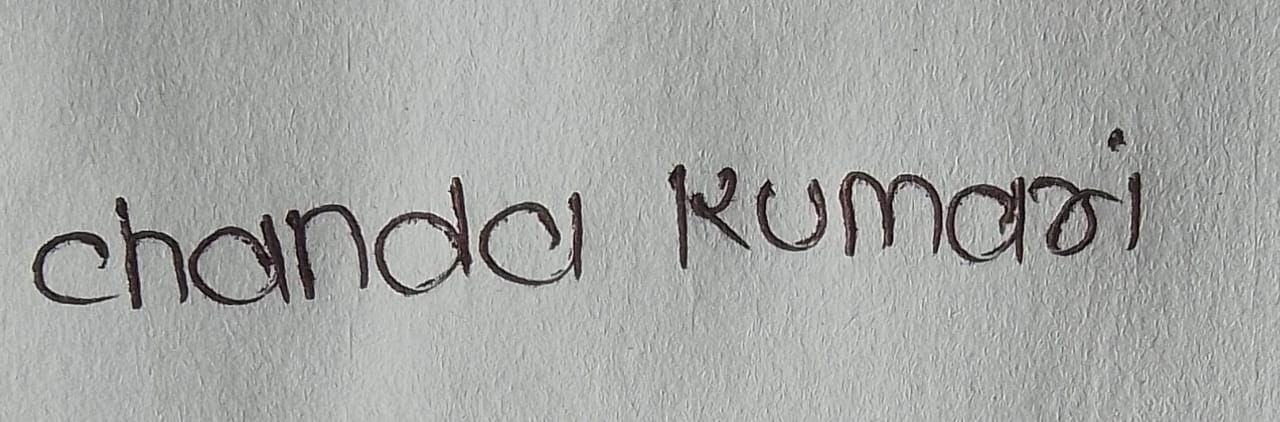 chanda kumari